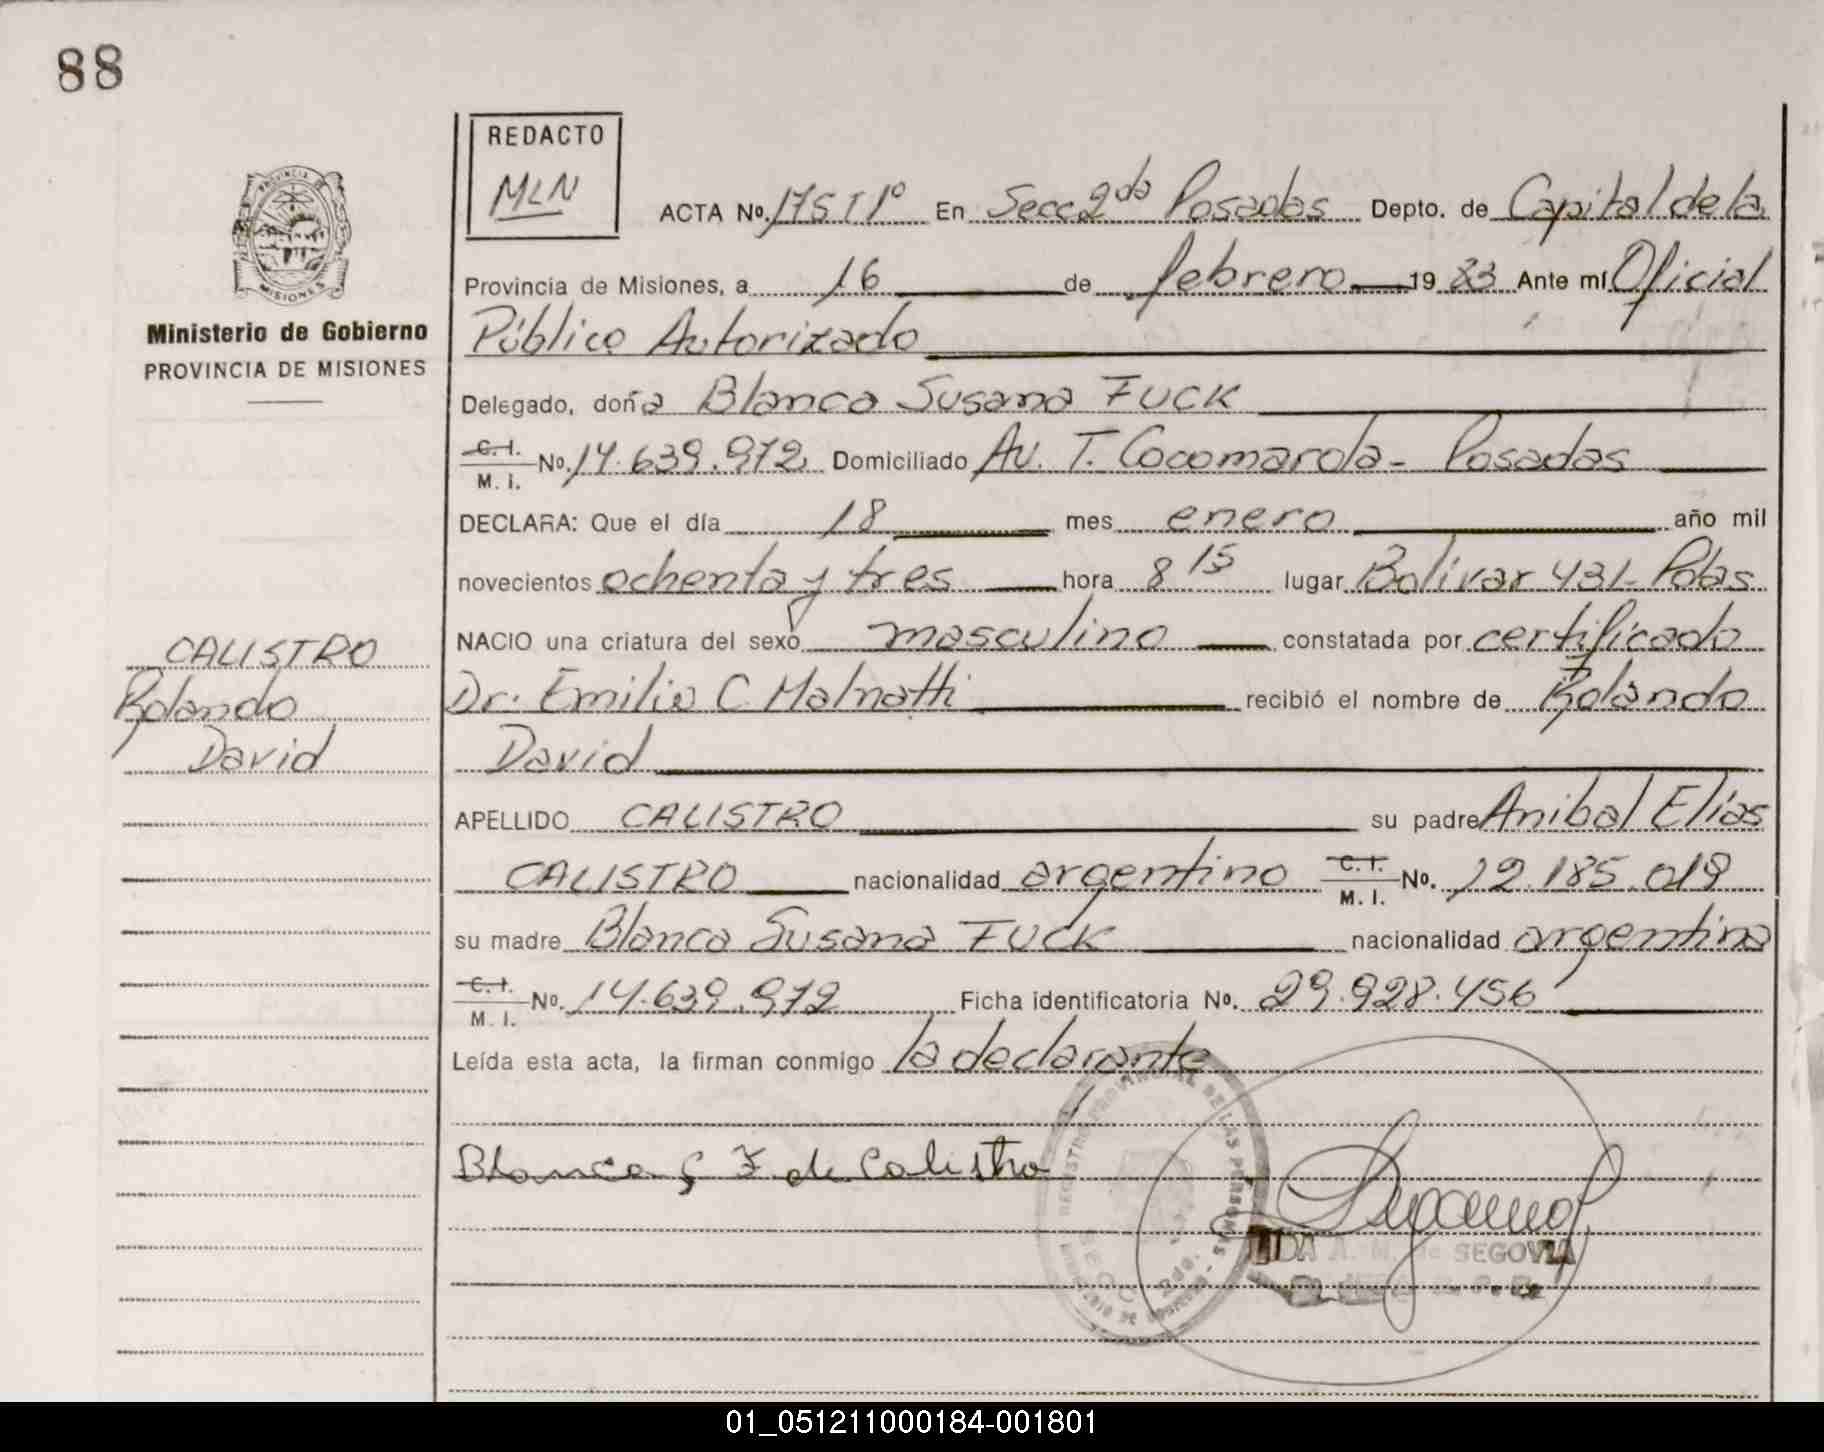 88
REDACTO
MLN
ACTA No. 175 T 1º En Secc 2da Posadas Depto. de Capital de la
Provincia de Misiones, a 16 de febrero 1983 Ante mí Oficial
Público Autorizado
Delegado, doña Blanca Susana FUCK
C. I. M. I. No. 14.639.972 Domiciliado Av. T. Cocomarola - Posadas
DECLARA: Que el día 18 mes enero año mil
novecientos ochenta y tres hora 8 15 lugar Bolívar 431 - Pdas
NACIO una criatura del sexo masculino constatada por certificado
Dr. Emilio C Malnatti recibió el nombre de Rolando
David
APELLIDO CALISTRO su padre Anibal Elías
CALISTRO nacionalidad argentino C. I. M. I. No. 12.185.019
su madre Blanca Susana FUCK nacionalidad argentina
C. I. M. I. No. 14.639.972 Ficha identificatoria No. 29.928.456
Leída esta acta, la firman conmigo la declarante
Blanca S F de Calistro
REGISTRO PROVINCIAL DE LAS PERSONAS
SECC. 2da.
SEGOVIA
PROVINCIA DE
MISIONES
Ministerio de Gobierno
PROVINCIA DE MISIONES
CALISTRO
Rolando
David
01_051211000184-001801